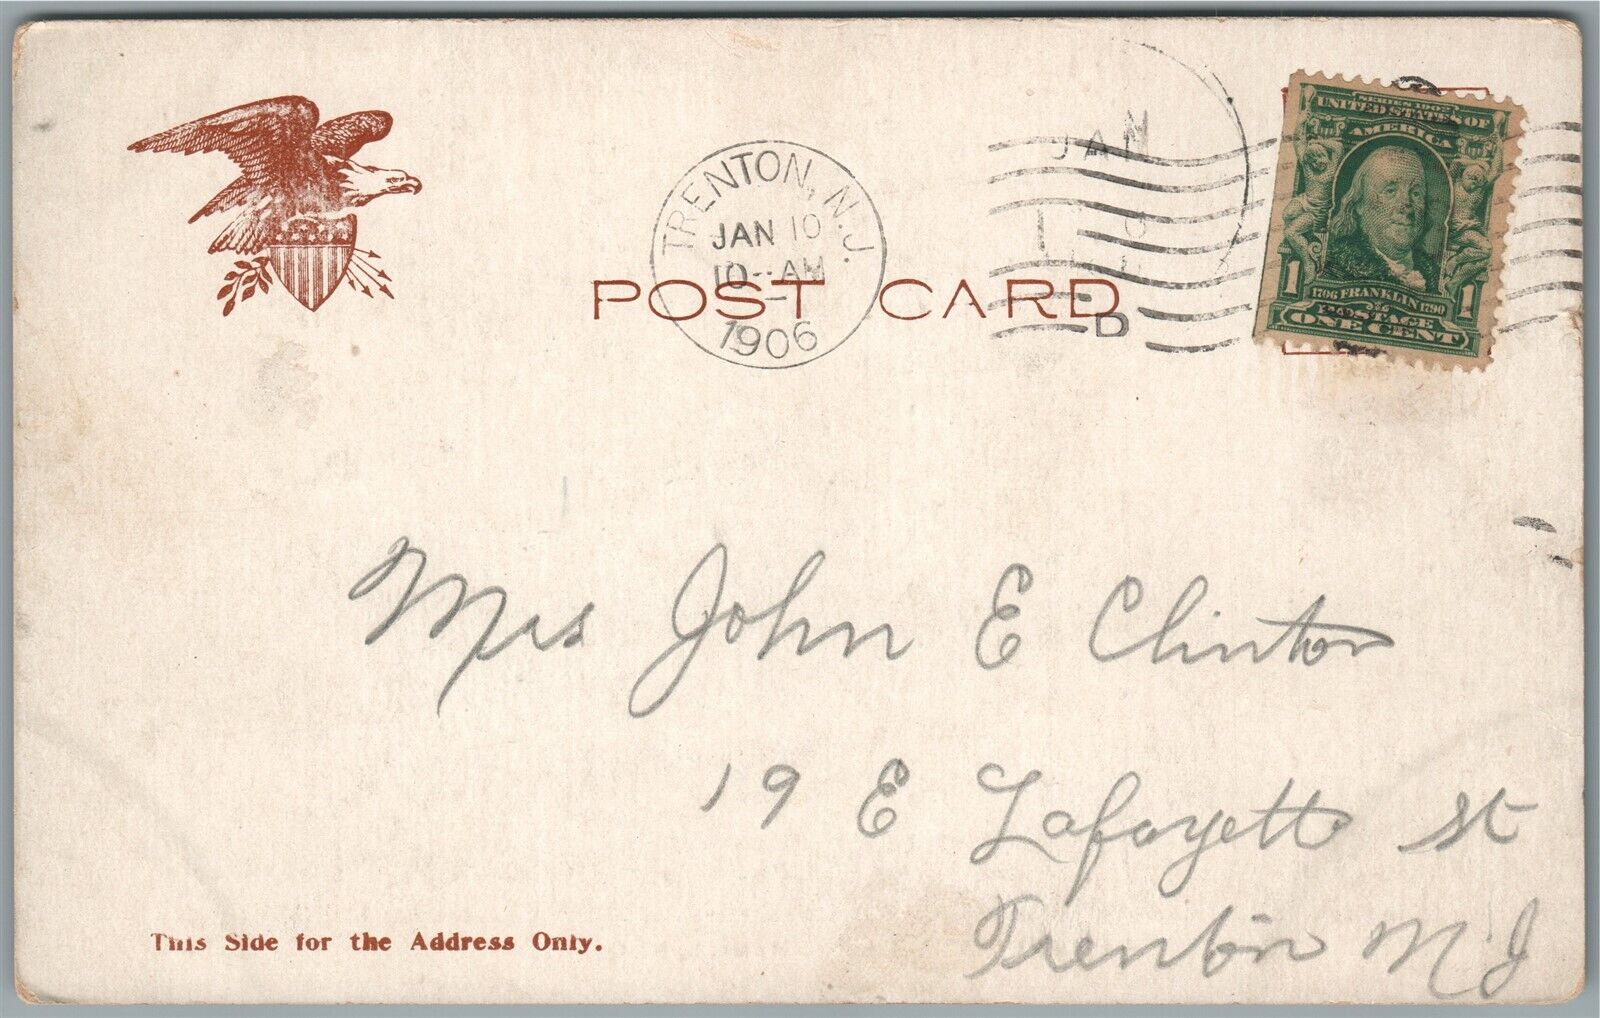 TRENTON, N.J.
JAN 10
10--AM
1906
JAN
D
SERIES 1902
UNITED STATES OF
AMERICA
1706 FRANKLIN 1790
1 POSTAGE 1
ONE CENT
POST CARD
Mrs John E Clinton
19 E Lafayette St
Trenton N J
This Side for the Address Only.